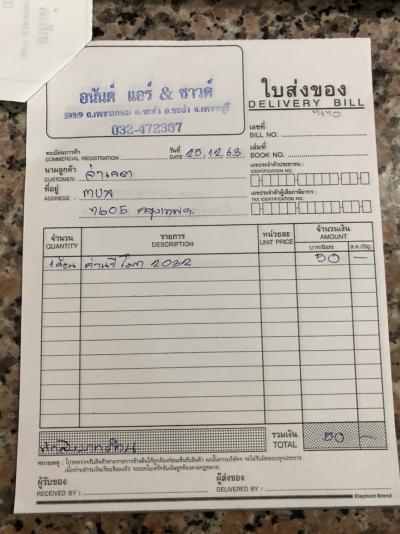 อนันต์ แอร์ & ซาวด์
599/9 ถ.เพชรเกษม ต.ชะอำ อ.ชะอำ จ.เพชรบุรี
032-472397
ใบส่งของ
DELIVERY BILL
เลขที่
BILL NO.
ทะเบียนการค้า วันที่ เล่มที่
COMMERCIAL REGISTRATION DATE 25,12,63 BOOK NO.
นามลูกค้า เลขประจำตัวประชาชน :
CUSTOMER IDENTIFICATION NO.
ที่อยู่ เลขประจำตัวผู้เสียภาษีอากร :
ADDRESS : TAX IDENTIFICATION NO.
กรุงเทพฯ
จำนวน รายการ หน่วยละ จำนวนเงิน
QUANTITY DESCRIPTION UNIT PRICE AMOUNT
บาท/Baht ส.ต./Stg.
1 ก้อน ถ่านรีโมท 2032 50 —
รวมเงิน
TOTAL 50 —
หมายเหตุ :
ผู้รับของ ผู้ส่งของ
RECEIVED BY : DELIVERED BY :
Elephant Brand